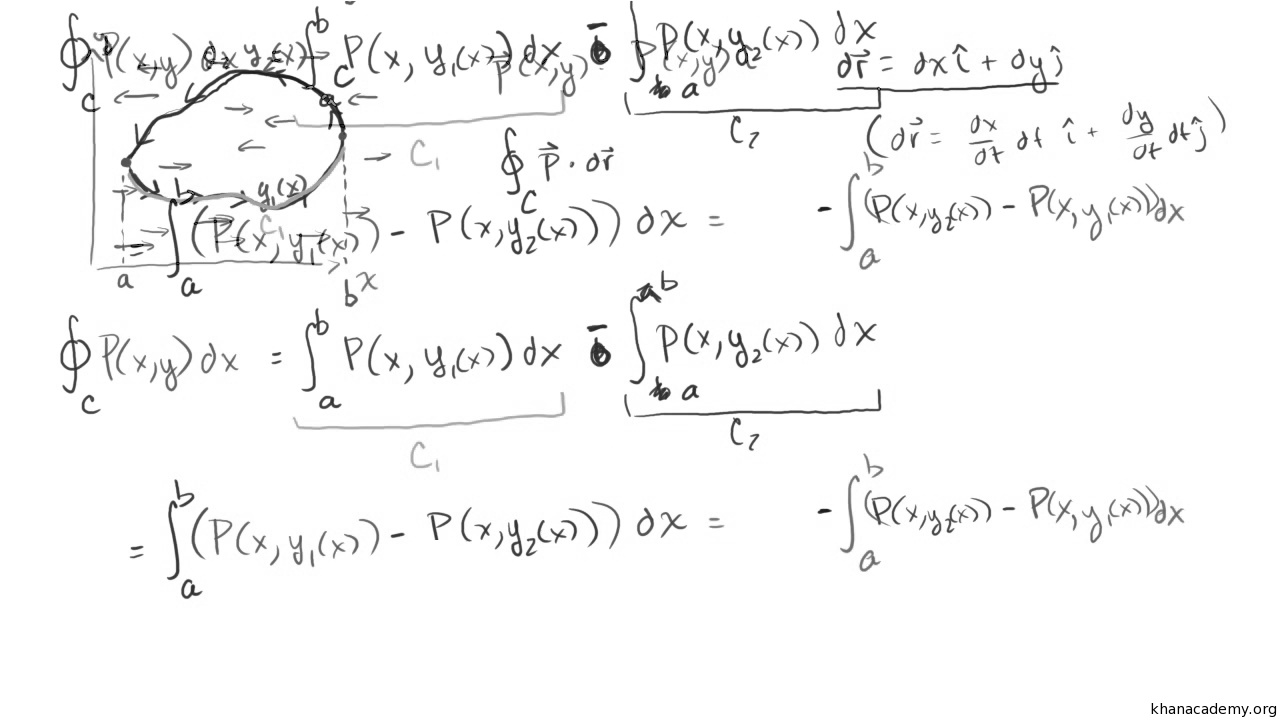 ∮_C P(x,y) dx y₂(x) ∫_a^b P(x, y₁(x)) dx - ∫_a P(x, y₂(x)) dx
P(x,y)
dr⃗ = dx î + dy ĵ
C
C₁ C₂
(dr⃗ = dx/dt dt î + dy/dt dt ĵ)
∮_C P⃗ · dr⃗
y₁(x)
C₁
= ∫_a^b (P(x, y₁(x)) - P(x, y₂(x))) dx = - ∫_a^b (P(x, y₂(x)) - P(x, y₁(x))) dx
a b x
∮_C P(x,y) dx = ∫_a^b P(x, y₁(x)) dx - ∫_a^b P(x, y₂(x)) dx
C₁ C₂
= ∫_a^b (P(x, y₁(x)) - P(x, y₂(x))) dx = - ∫_a^b (P(x, y₂(x)) - P(x, y₁(x))) dx
khanacademy.org